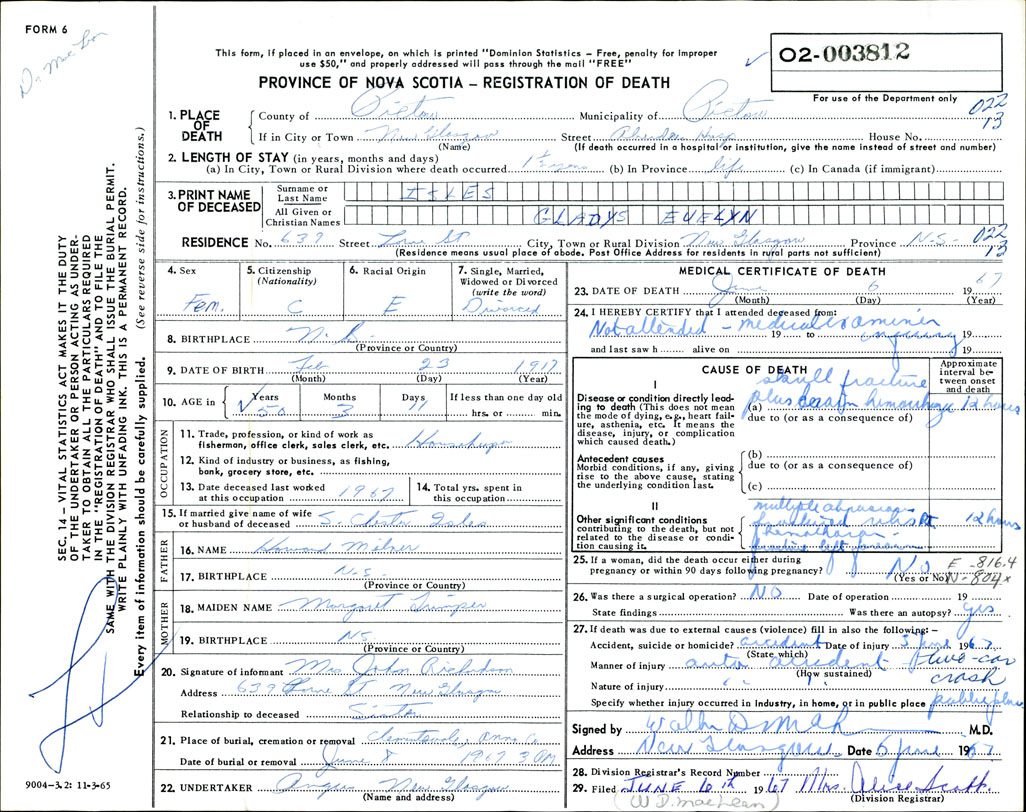 FORM 6
This form, if placed in an envelope, on which is printed "Dominion Statistics – Free, penalty for improper
use $50," and properly addressed will pass through the mail "FREE"
O2-003812
PROVINCE OF NOVA SCOTIA – REGISTRATION OF DEATH
For use of the Department only
1. PLACE OF DEATH
County of Pictou Municipality of Pictou 022
If in City or Town New Glasgow Street Aberdeen Hosp House No. 13
(Name) (If death occurred in a hospital or institution, give the name instead of street and number)
2. LENGTH OF STAY (in years, months and days)
(a) In City, Town or Rural Division where death occurred (b) In Province life (c) In Canada (if immigrant)
3. PRINT NAME OF DECEASED
Surname or Last Name ISLES
All Given or Christian Names GLADYS EVELYN
RESIDENCE No. 639 Street St City, Town or Rural Division New Glasgow Province N.S. 022
(Residence means usual place of abode. Post Office Address for residents in rural parts not sufficient) 13
4. Sex Fem.
5. Citizenship (Nationality) C
6. Racial Origin E
7. Single, Married, Widowed or Divorced (write the word) Divorced
8. BIRTHPLACE N.B.
(Province or Country)
9. DATE OF BIRTH Feb 23 1917
(Month) (Day) (Year)
10. AGE in Years 50 Months 3 Days 11 If less than one day old
hrs. or min.
OCCUPATION
11. Trade, profession, or kind of work as
fisherman, office clerk, sales clerk, etc. Housekeeper
12. Kind of industry or business, as fishing,
bank, grocery store, etc.
13. Date deceased last worked
at this occupation 1967
14. Total yrs. spent in
this occupation
15. If married give name of wife
or husband of deceased S. Isles
FATHER
16. NAME Howard Milner
17. BIRTHPLACE N.S.
(Province or Country)
MOTHER
18. MAIDEN NAME Margaret
19. BIRTHPLACE NS
(Province or Country)
20. Signature of informant Mrs John
Address 639 St New Glasgow
Relationship to deceased Sister
21. Place of burial, cremation or removal Clementsvale, Anna Co
Date of burial or removal June 8 1967
22. UNDERTAKER Angus New Glasgow
(Name and address)
MEDICAL CERTIFICATE OF DEATH
23. DATE OF DEATH June 6 1967
(Month) (Day) (Year)
24. I HEREBY CERTIFY that I attended deceased from:
Not attended – medical examiner
19 to inquiry 19
and last saw h alive on 19
CAUSE OF DEATH
Approximate interval between onset and death
I
Disease or condition directly leading to death (This does not mean the mode of dying, e.g., heart failure, asthenia, etc. It means the disease, injury, or complication which caused death.)
skull fracture
(a) plus brain hemorrhage 12 hours
due to (or as a consequence of)
Antecedent causes
Morbid conditions, if any, giving rise to the above cause, stating the underlying condition last.
(b)
due to (or as a consequence of)
(c)
II
Other significant conditions
contributing to the death, but not related to the disease or condition causing it.
multiple abrasions
fractured 12 hours
25. If a woman, did the death occur either during
pregnancy or within 90 days following pregnancy? No
(Yes or No)
E-816.4
N-804x
26. Was there a surgical operation? NO Date of operation 19
State findings Was there an autopsy? yes
27. If death was due to external causes (violence) fill in also the following: –
Accident, suicide or homicide? accident Date of injury 5 June 1967
(State which)
Manner of injury auto accident two-car
(How sustained) crash
Nature of injury " "
Specify whether injury occurred in industry, in home, or in public place public place
Signed by M.D.
Address New Glasgow Date 6 June 1967
28. Division Registrar's Record Number
29. Filed JUNE 6th 1967 Mrs. Alice Scott
(Division Registrar)
(W D. MacLean)
SEC. 14 – VITAL STATISTICS ACT MAKES IT THE DUTY
OF THE UNDERTAKER OR PERSON ACTING AS UNDER-
TAKER TO OBTAIN ALL THE PARTICULARS REQUIRED
IN THE "REGISTRATION OF DEATH" AND TO FILE THE
SAME WITH THE DIVISION REGISTRAR WHO SHALL ISSUE THE BURIAL PERMIT.
WRITE PLAINLY WITH UNFADING INK. THIS IS A PERMANENT RECORD.
Every item of information should be carefully supplied. (See reverse side for instructions.)
9004-3.2: 11-3-65